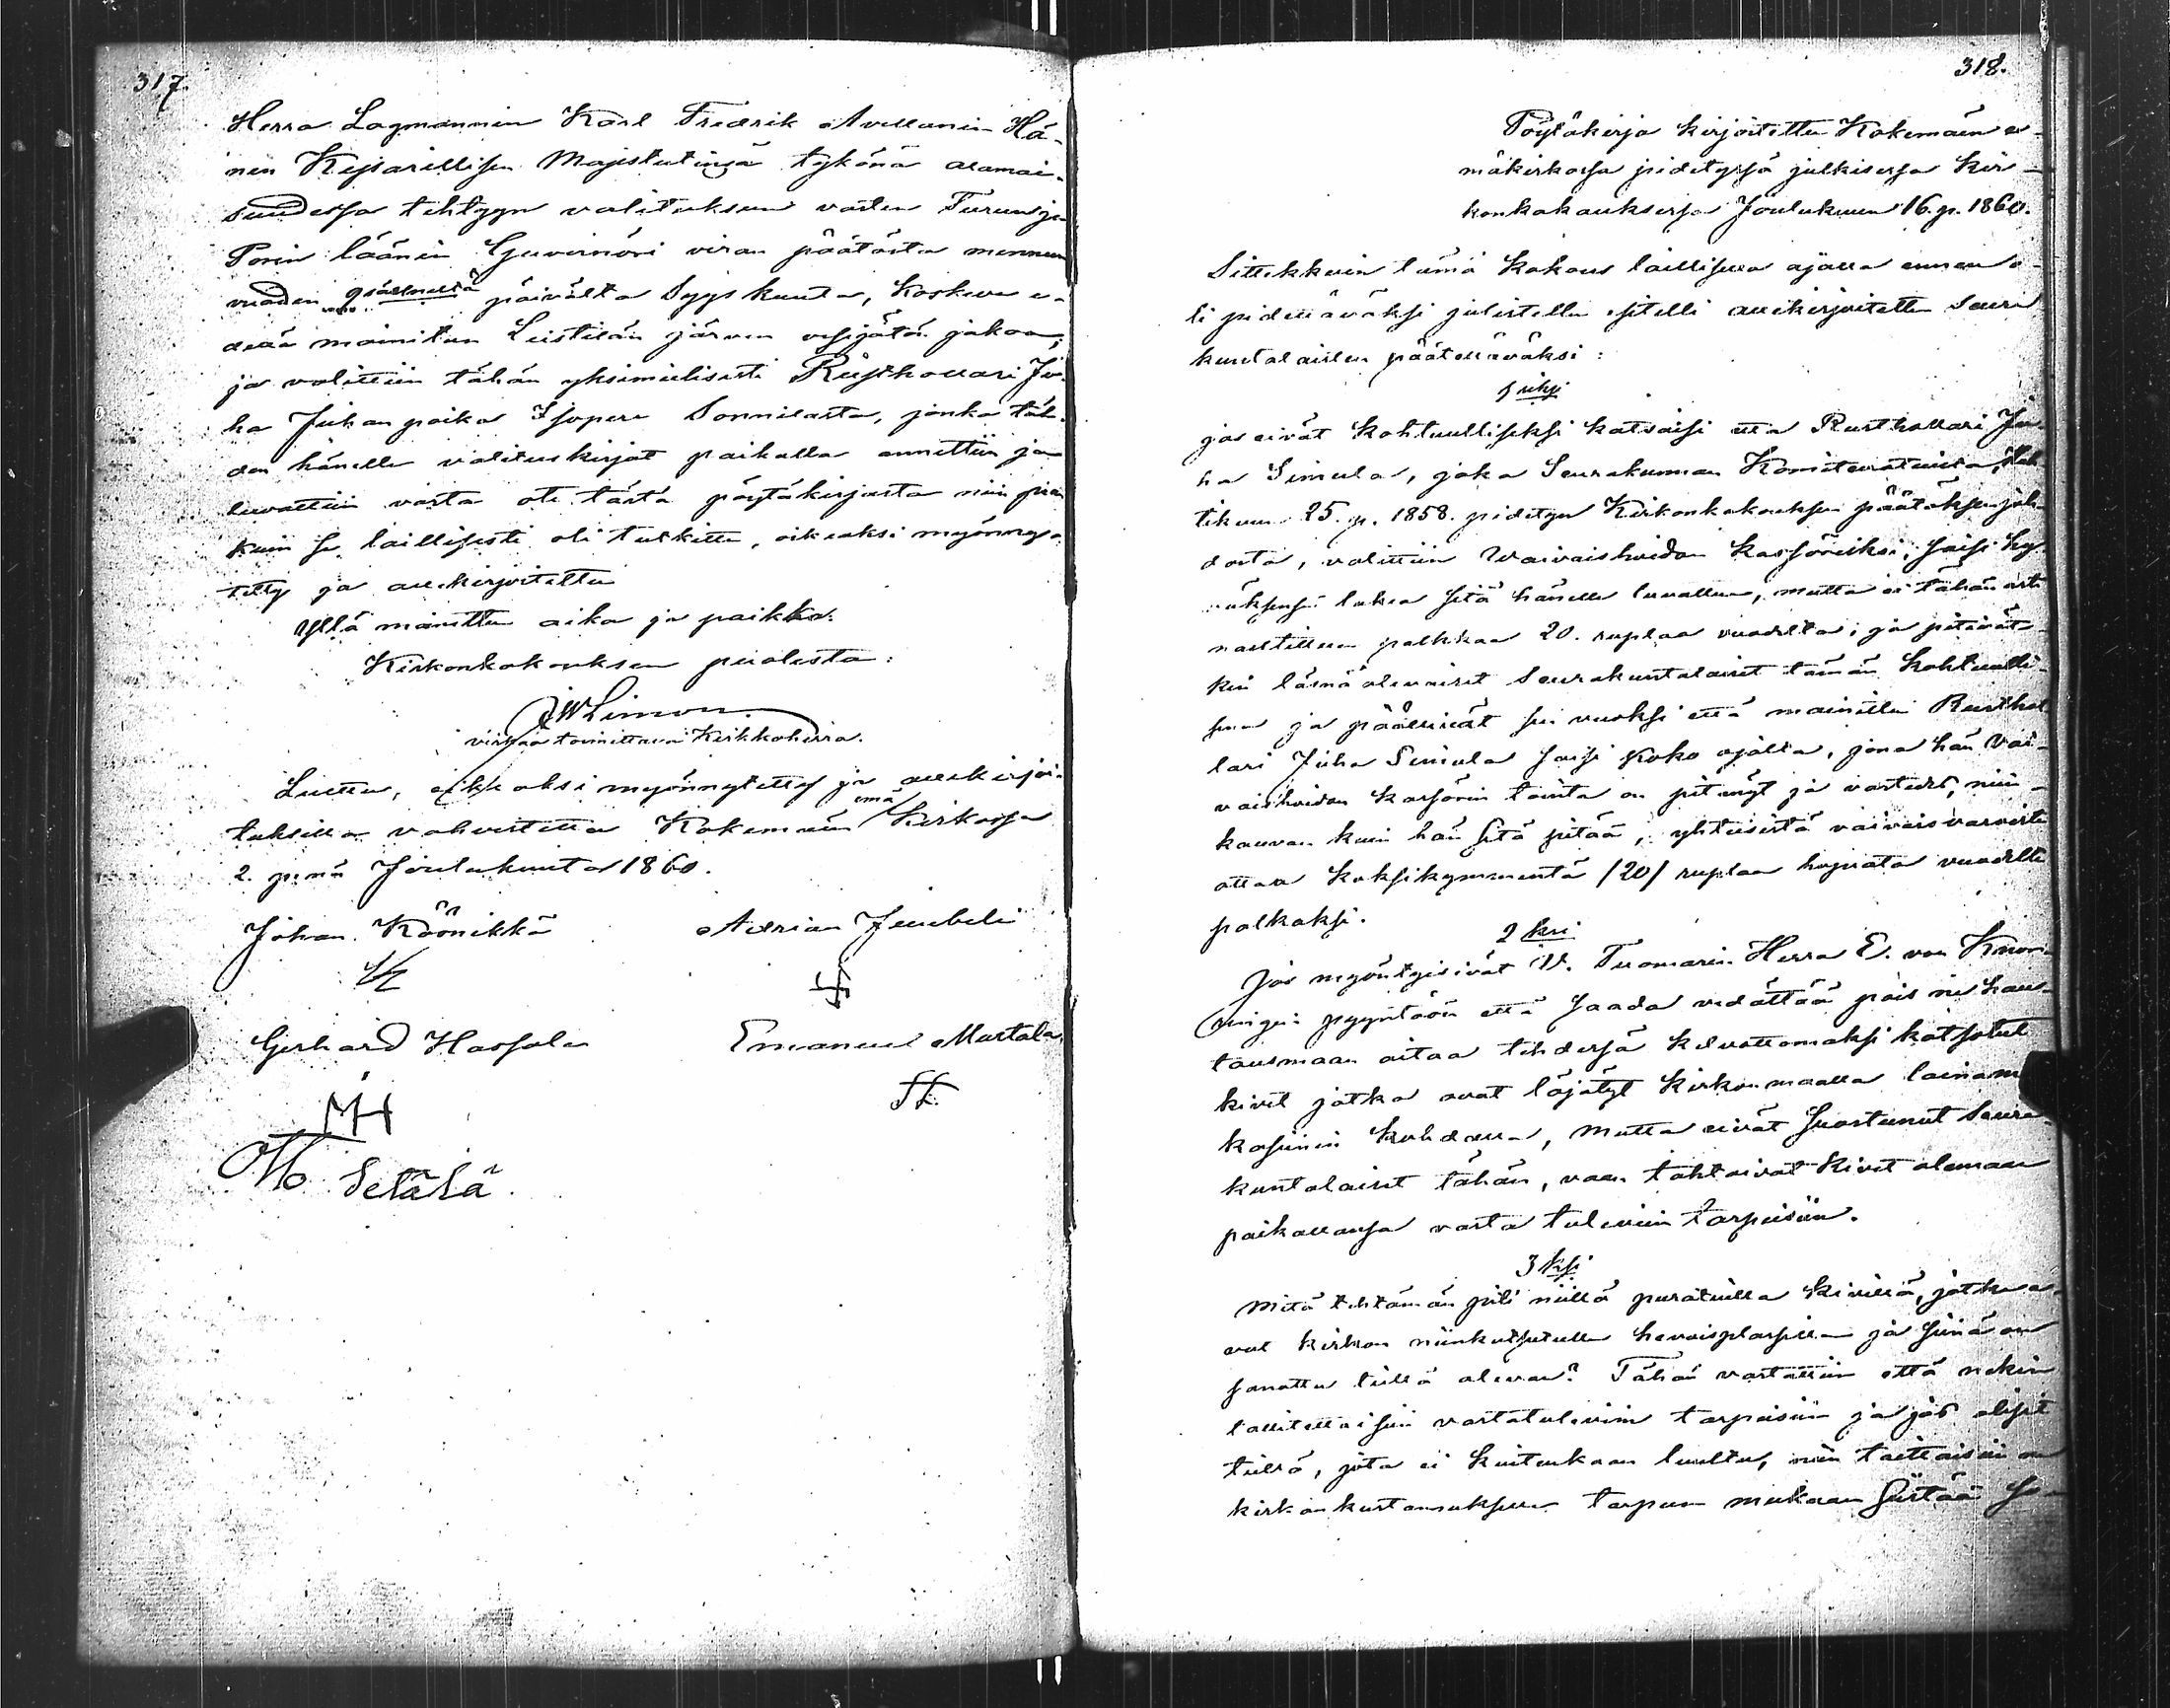 317.
Herra Lagmannin Karl Fredrik Avellanin Hä-
nen Kejsarillisen Majestetinsä tykönä alamai-
suudessa tehtyyn valituksen vasten Turun ja
Porin läänin Guvernöri viran päätöstä mennen
vuoden 9 päivältä Syyskuuta, koskeva e-
dellä mainitun Leistilän järven vesijätön jakoa;
ja valittiin tähän yksimielisesti Rusthollari Ju-
ha Juhanpoika Isopere Sonnilasta, jonka täh-
den hänelle valituskirjat paikalla annettiin ja
luvattiin vasta ote tästä pöytäkirjasta niin pian
kuin se laillisesti oli tutkittu, oikiaksi myönnyt-
tetty ja allekirjoitettu
Yllä mainittu aika ja paikka.
Kirkonkokouksen puolesta:
virkaa toimittava Kirkkoherra.
Luettu, oikiaksi myönnytetty ja allekirjoi-
tuksilla vahvistettu Kokemäen emä Kirkossa
2. p:nä Joulukuuta 1860.
Johan Köönikkä Adrian Juubeli
Gerhard Hassala Emanuel Martala
MH
Setälä
318.
Pöytäkirja kirjoitettu Kokemäen e-
mäkirkossa pidetyssä julkisessa Kir-
konkokouksessa Joulukuun 16. p. 1860.
Sittekkuin tämä kokous laillisella ajalla ennen o-
li pidettäväksi julistettu esitelli allekirjoitettu Seura
kuntalaisten päätettäväksi:
1 Siksi
jos eivät kohtuulliseksi katsoisi että Rusthollari Ju-
ha Simula, joka Seurakunnan
tikuun 25. p. 1858. pidetyn Kirkonkokouksen päätöksen joh-
dosta, valittiin Vaivaishoidon kassööriksi, saisi hy-
väksensä lukea sitä hänelle luvattua, mutta ei tähän asti
nautittua palkkaa 20. ruplaa vuodelta; ja pitivät-
kin läsnä olevaiset Seurakuntalaiset tämän kohtuulli-
sena ja päättivät sen vuoksi että mainittu Rusthol
lari Juha Simula saisi koko ajalta, jona hän Vai-
vaishoidon kassörin tointa on pitänyt ja vastedes, niin-
kauvan kuin hän sitä pitää, yhteisistä vaivaisvaroista
ottaa kaksikymmentä /20/ ruplaa hopiata vuodelta
palkaksi.
2 ksi
Jos myöntyisivät V. Tuomarin Herra E. von Knor-
ringin pyyntöön että saada vedättää pois ne hau-
tausmaan aitaa tehdessä kelvottomaksi katsotut
kivet jotka ovat läjätyt Kirkon maalla lainama-
kasiinin kohdalla, mutta eivät suostunut Seura-
kuntalaiset tähän, vaan tahtoivat kivet olemaan
paikallansa vasta tuleviin tarpeisiin.
3 ksi
Mitä tehtämän piti niillä puratuilla kivillä, jotka o-
vat kirkon niinkutsutulla
sanottu tiellä olevan? Tähän vastattiin että nekin
tallitettaisiin vastatuleviin tarpeisiin ja jos olisit
tiellä, jota ei kuitenkaan luultu, niin taittaisiin ne
kirkon kustannuksella tarpeen mukaan siirtää